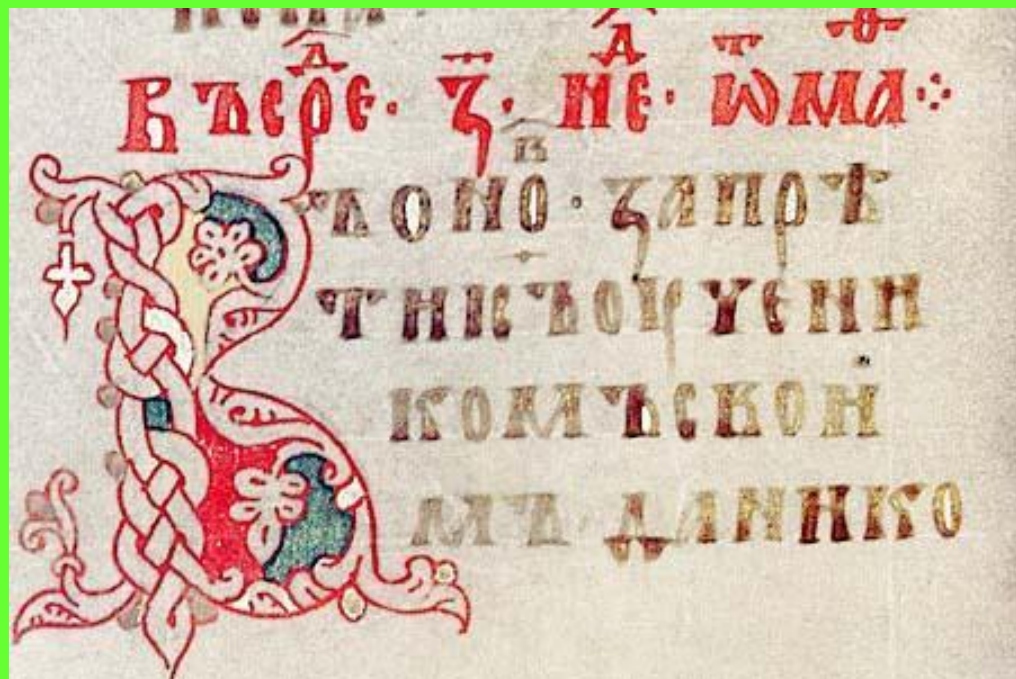 ВЪСРⷣЕ · З҃ · НЕⷣ · ѾМАⷴ ⁘
ВЪОНОⷡ · ЗАПРѢ
ТИІС҃ЪОУЧЕНИ
КОМЪСВОИ
МЪ ДАНИКО